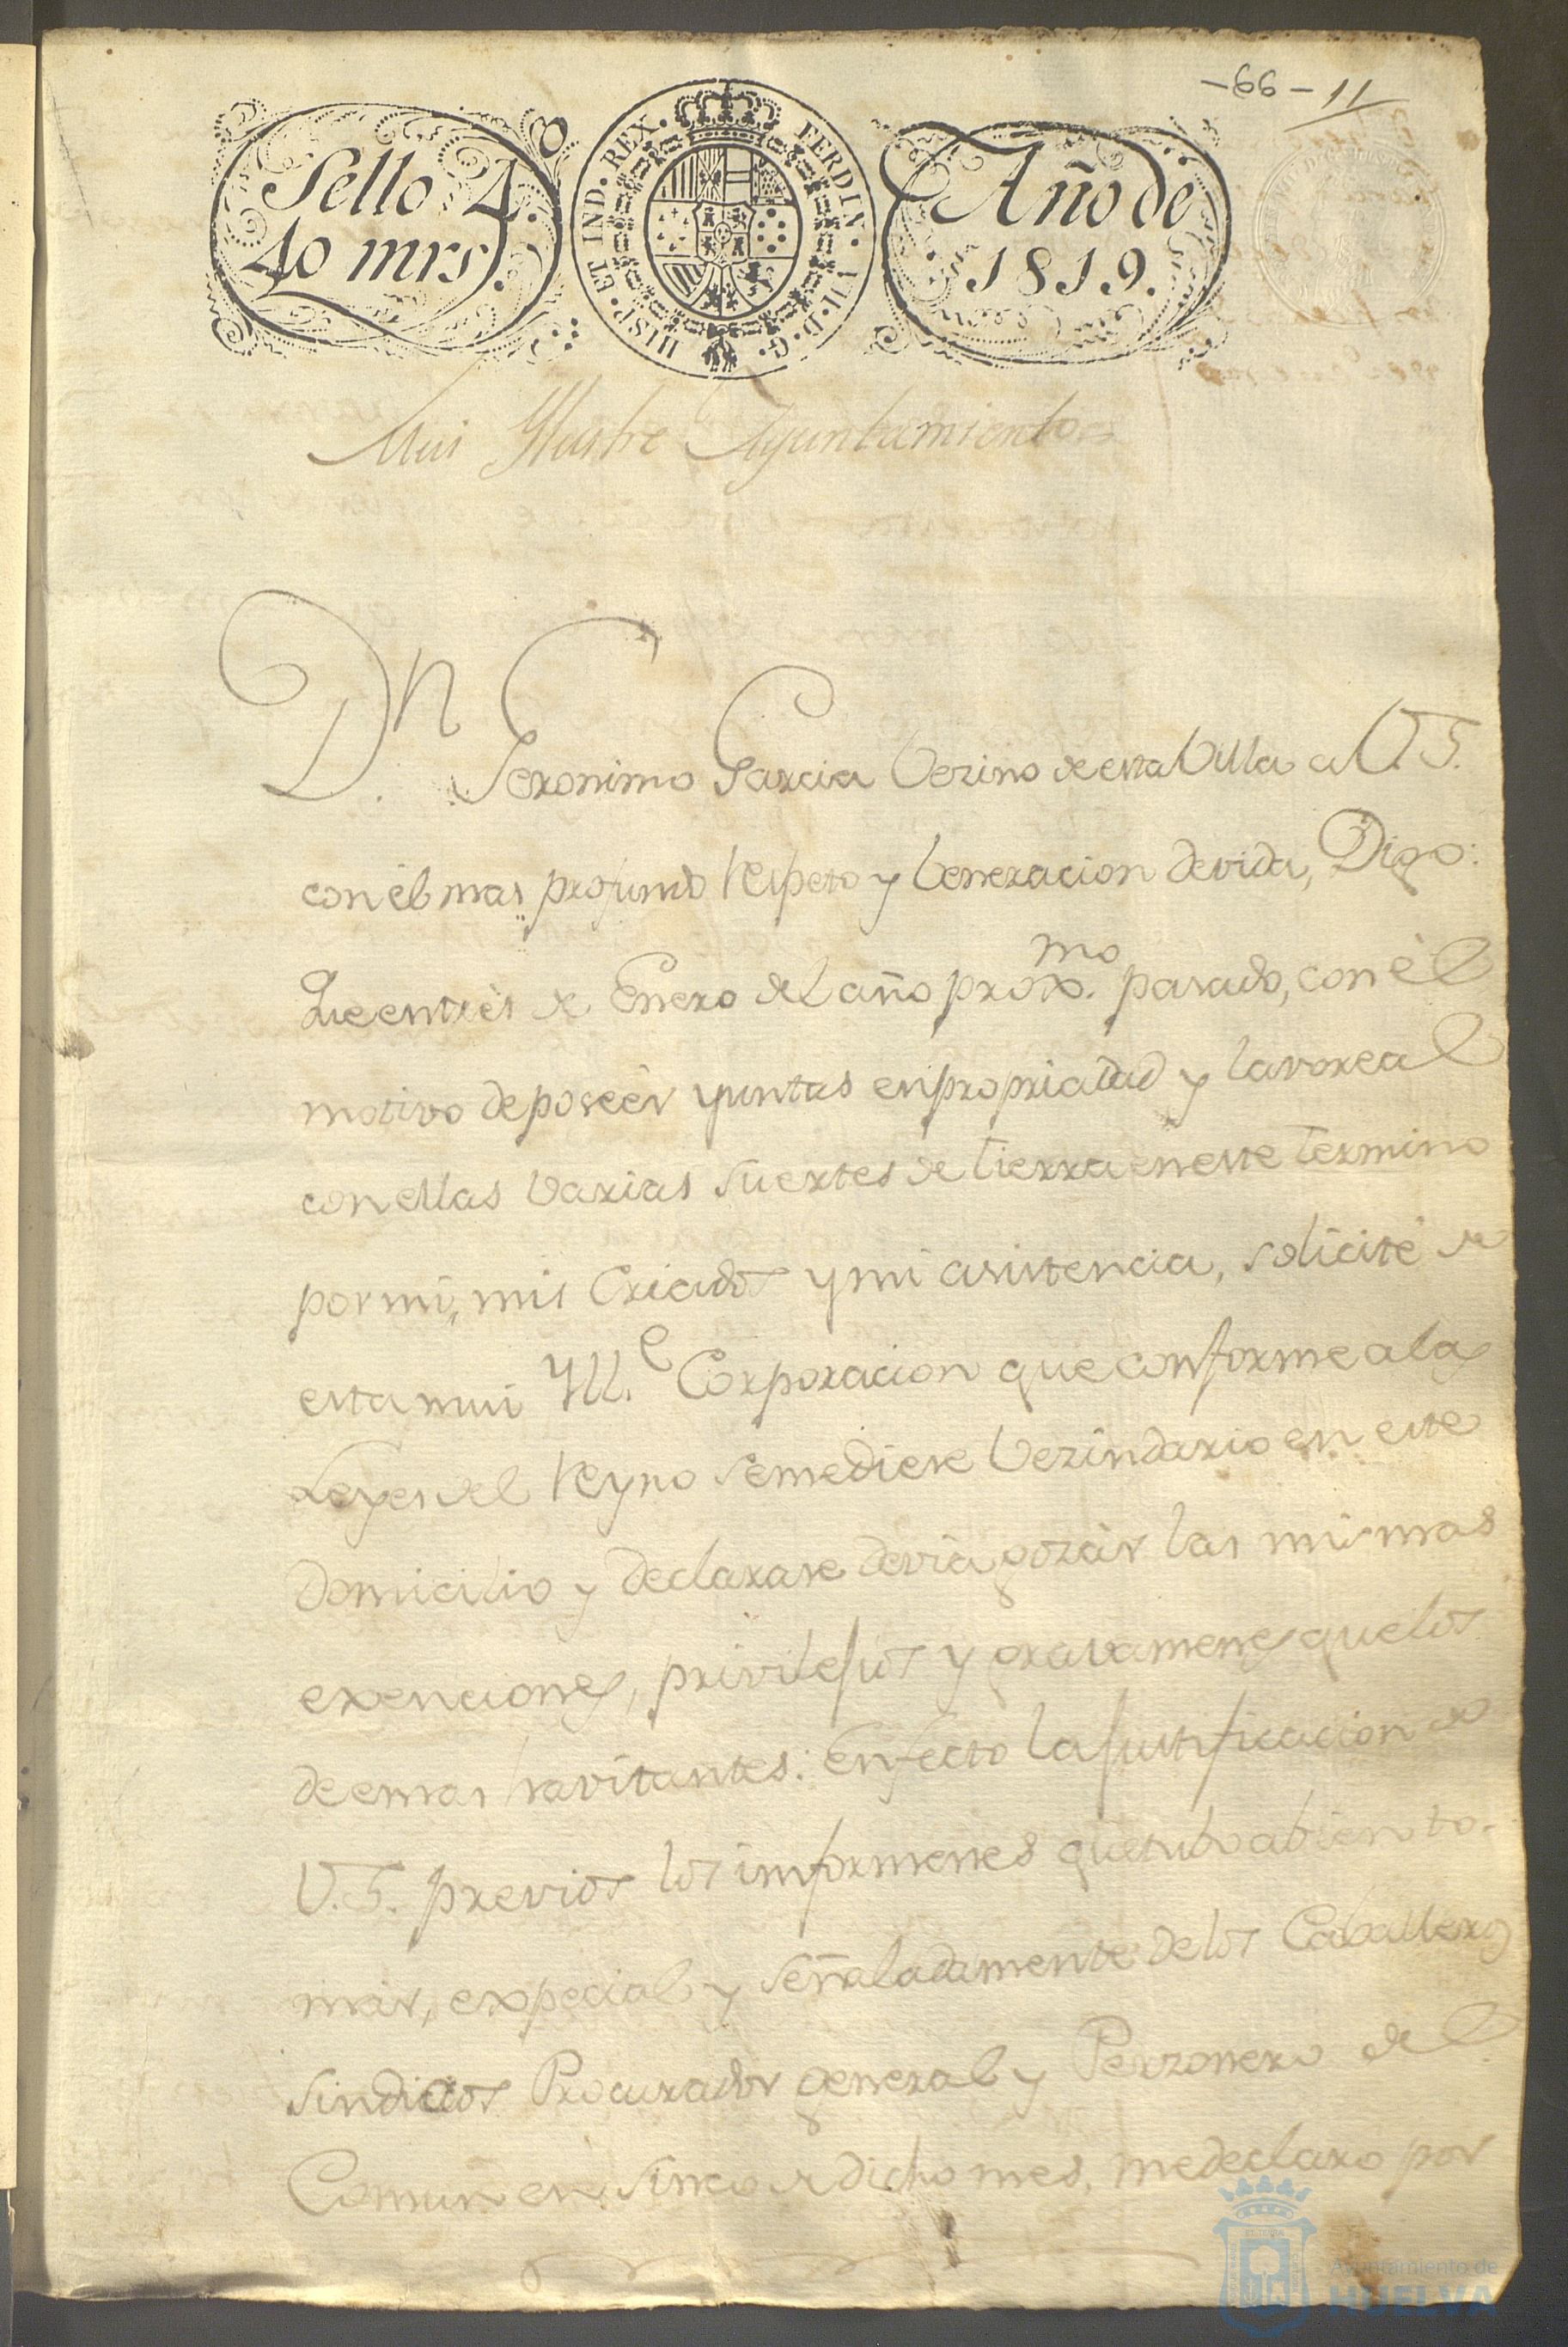 -66-11
Sello 4.
40 mrs.
FERDIN. VII. D. G. HISP. ET IND. REX.
Año de
1819.
Mui Ylustre Ayuntamiento
Dn. Geronimo Garcia Vezino de esta Villa a V.S.
con él mas profundo Respeto y Veneracion devida, Digo:
Que en tres de Enero del año proxmo. pasado, con él
motivo de poseér yuntas en propriedad y lavorear
con ellas varias suertes de tierra en este termino
por mi, mis Criados y mi asistencia, solicité de
esta mui Yll.e Corporacion que conforme a las
Leyes del Reyno se me diese Vezindario en este
Domicilio y declarase devia gozár las mismas
exenciones, privilejios y gravamenes que los
deemas havitantes: En fecto la justificacion de
V.S. previos los informenes que tubo abien to-
már, expecial y señaladamente de los Caballeros
sindicos Procurador general y Perzonero del
Comun en sinco de dicho mes, me declaro por
Ayuntamiento de
HUELVA